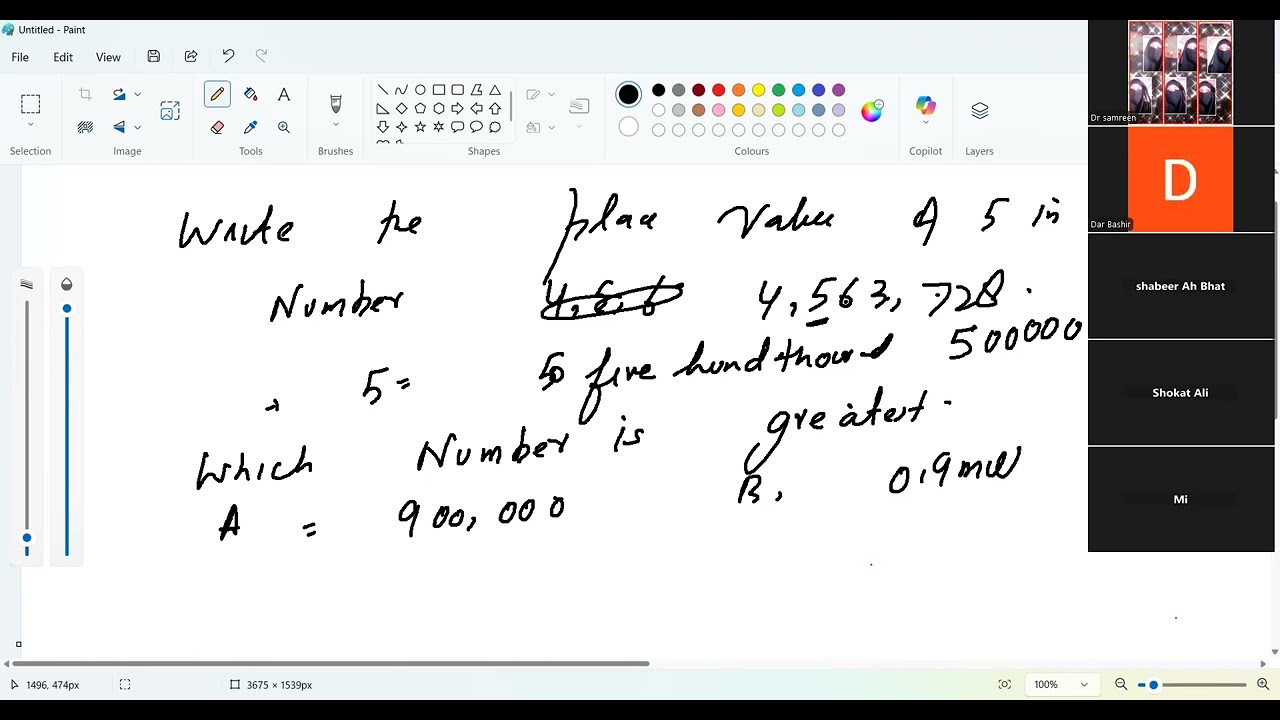 Untitled - Paint
File Edit View
Selection Image Tools Brushes Shapes Colours Copilot Layers
Write the place value of 5 in
Number 4,563,728.
5 = five hund thound 500000
Which Number is greatest.
A = 900,000 B, 0.9 mill
Dr samreen
D
Dar Bashir
shabeer Ah Bhat
Shokat Ali
Mi
1496, 474px 3675 × 1539px 100%